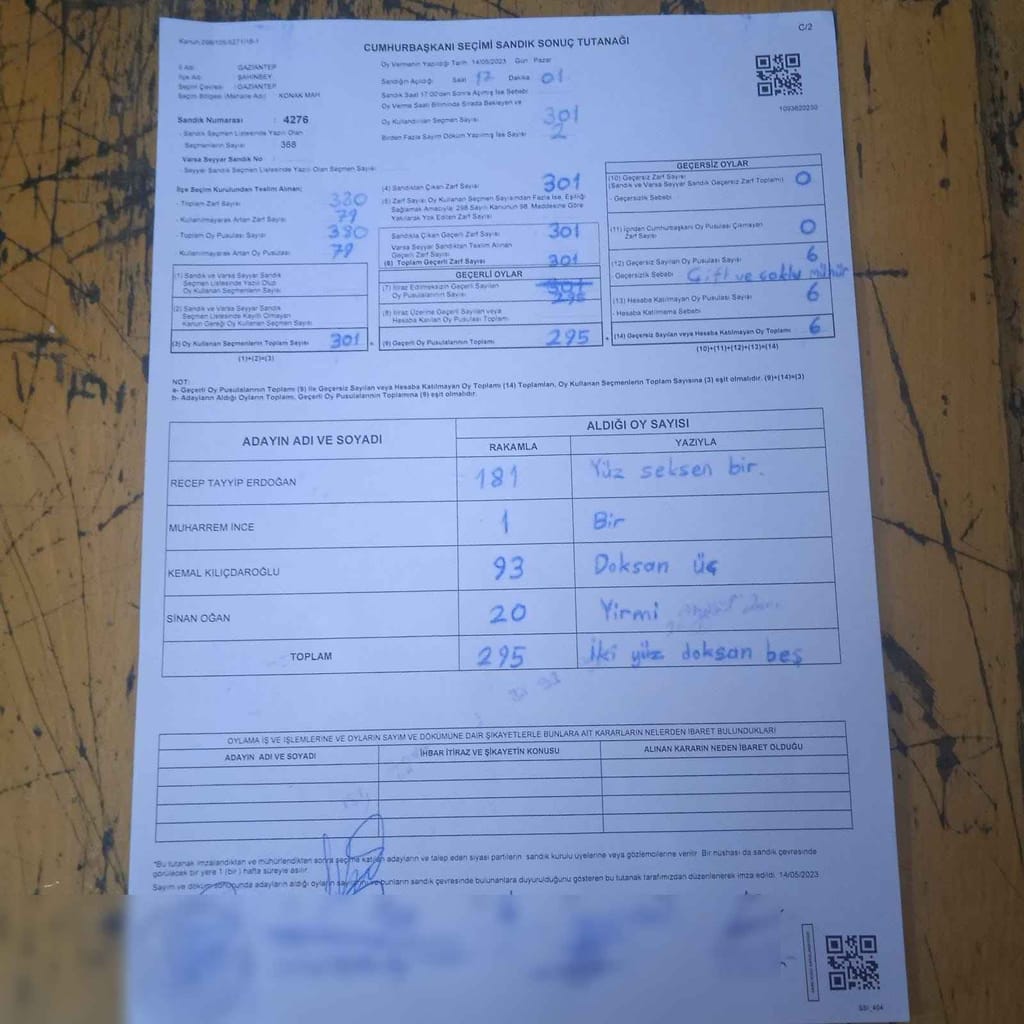 C/2
CUMHURBAŞKANI SEÇİMİ SANDIK SONUÇ TUTANAĞI
İl Adı : GAZİANTEP
İlçe Adı : ŞAHİNBEY
Seçim Çevresi : GAZİANTEP
Seçim Bölgesi (Mahalle Adı) : KONAK MAH
Sandık Numarası : 4276
- Sandık Seçmen Listesinde Yazılı Olan
Seçmenlerin Sayısı : 368
Varsa Seyyar Sandık No :
- Seyyar Sandık Seçmen Listesinde Yazılı Olan Seçmen Sayısı
Oy Vermenin Yapıldığı Tarih 14/05/2023 Gün Pazar
Sandığın Açıldığı Saat 17 Dakika 01
Sandık Saat 17.00'den Sonra Açılmış İse Sebebi
Oy Verme Saati Bitiminde Sırada Bekleyen ve
Oy Kullandırılan Seçmen Sayısı 301
Birden Fazla Sayım Döküm Yapılmış İse Sayısı 2
İlçe Seçim Kurulundan Teslim Alınan;
- Toplam Zarf Sayısı 380
- Kullanılmayarak Artan Zarf Sayısı 79
- Toplam Oy Pusulası Sayısı 380
- Kullanılmayarak Artan Oy Pusulası 79
(1) Sandık ve Varsa Seyyar Sandık
Seçmen Listesinde Yazılı Olup
Oy Kullanan Seçmenlerin Sayısı
(2) Sandık ve Varsa Seyyar Sandık
Seçmen Listesinde Kayıtlı Olmayan
Kanun Gereği Oy Kullanan Seçmen Sayısı
(3) Oy Kullanan Seçmenlerin Toplam Sayısı 301 =
(1)+(2)=(3)
(4) Sandıktan Çıkan Zarf Sayısı 301
(5) Zarf Sayısı Oy Kullanan Seçmen Sayısından Fazla İse, Eşitliği
Sağlamak Amacıyla 298 Sayılı Kanunun 98. Maddesine Göre
Yakılarak Yok Edilen Zarf Sayısı
Sandıkta Çıkan Geçerli Zarf Sayısı 301
Varsa Seyyar Sandıktan Teslim Alınan
Geçerli Zarf Sayısı
(6) Toplam Geçerli Zarf Sayısı 301
GEÇERLİ OYLAR
(7) İtiraz Edilmeksizin Geçerli Sayılan
Oy Pusulalarının Sayısı 295
(8) İtiraz Üzerine Geçerli Sayılan veya
Hesaba Katılan Oy Pusulası Toplamı
(9) Geçerli Oy Pusulalarının Toplamı 295 +
1093820250
GEÇERSİZ OYLAR
(10) Geçersiz Zarf Sayısı
(Sandık ve Varsa Seyyar Sandık Geçersiz Zarf Toplamı) 0
- Geçersizlik Sebebi
(11) İçinden Cumhurbaşkanı Oy Pusulası Çıkmayan
Zarf Sayısı 0
(12) Geçersiz Sayılan Oy Pusulası Sayısı 6
- Geçersizlik Sebebi Çift ve çoklu mühür
(13) Hesaba Katılmayan Oy Pusulası Sayısı 6
- Hesaba Katılmama Sebebi
(14) Geçersiz Sayılan veya Hesaba Katılmayan Oy Toplamı 6
(10)+(11)+(12)+(13)=(14)
NOT:
a- Geçerli Oy Pusulalarının Toplamı (9) ile Geçersiz Sayılan veya Hesaba Katılmayan Oy Toplamı (14) Toplamları, Oy Kullanan Seçmenlerin Toplam Sayısına (3) eşit olmalıdır. (9)+(14)=(3)
b- Adayların Aldığı Oyların Toplamı, Geçerli Oy Pusulalarının Toplamına (9) eşit olmalıdır.
ADAYIN ADI VE SOYADI ALDIĞI OY SAYISI
RAKAMLA YAZIYLA
RECEP TAYYİP ERDOĞAN 181 Yüz seksen bir.
MUHARREM İNCE 1 Bir
KEMAL KILIÇDAROĞLU 93 Doksan üç
SİNAN OĞAN 20 Yirmi
TOPLAM 295 İki yüz doksan beş
OYLAMA İŞ VE İŞLEMLERİNE VE OYLARIN SAYIM VE DÖKÜMÜNE DAİR ŞİKAYETLERLE BUNLARA AİT KARARLARIN NELERDEN İBARET BULUNDUKLARI
ADAYIN ADI VE SOYADI İHBAR İTİRAZ VE ŞİKAYETİN KONUSU ALINAN KARARIN NEDEN İBARET OLDUĞU
*Bu tutanak imzalandıktan ve mühürlendikten sonra seçime katılan adayların ve talep eden siyasi partilerin sandık kurulu üyelerine veya gözlemcilerine verilir. Bir nüshası da sandık çevresinde
görülecek bir yere 1 (bir) hafta süreyle asılır.
Sayım ve döküm sonucunda adayların aldığı oyların sayısını ve bunların sandık çevresinde bulunanlara duyurulduğunu gösteren bu tutanak tarafımızdan düzenlenerek imza edildi. 14/05/2023